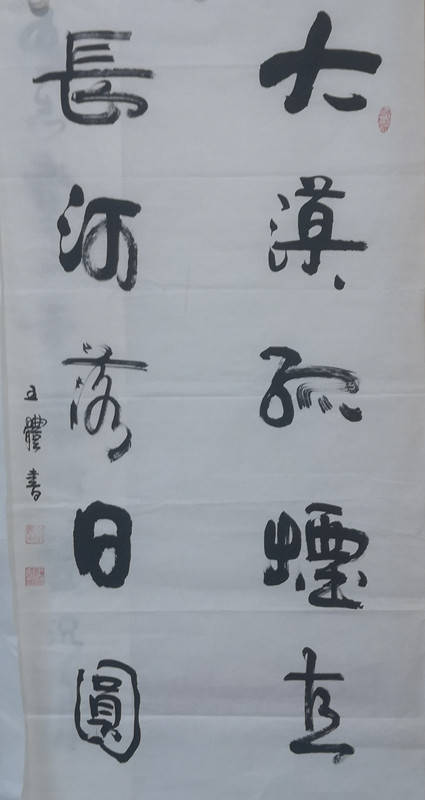 大漠孤煙直
長河落日圓
王體書